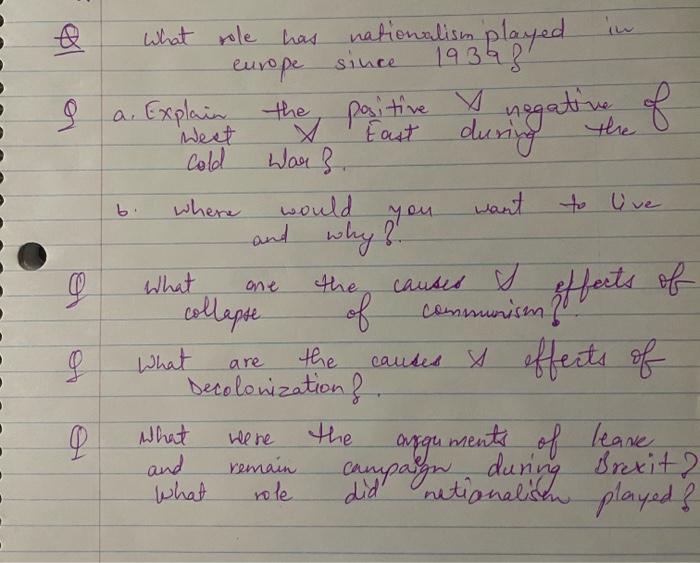 Q What role has nationalism played in
europe since 1939?
Q a. Explain the positive & negative of
West & East during the
Cold War?.
b. where would you want to live
and why?.
Q What are the causes & effects of
collapse of communism?.
Q What are the causes & effects of
Decolonization?.
Q What were the arguments of leave
and remain campaign during Brexit?
What role did nationalism played?